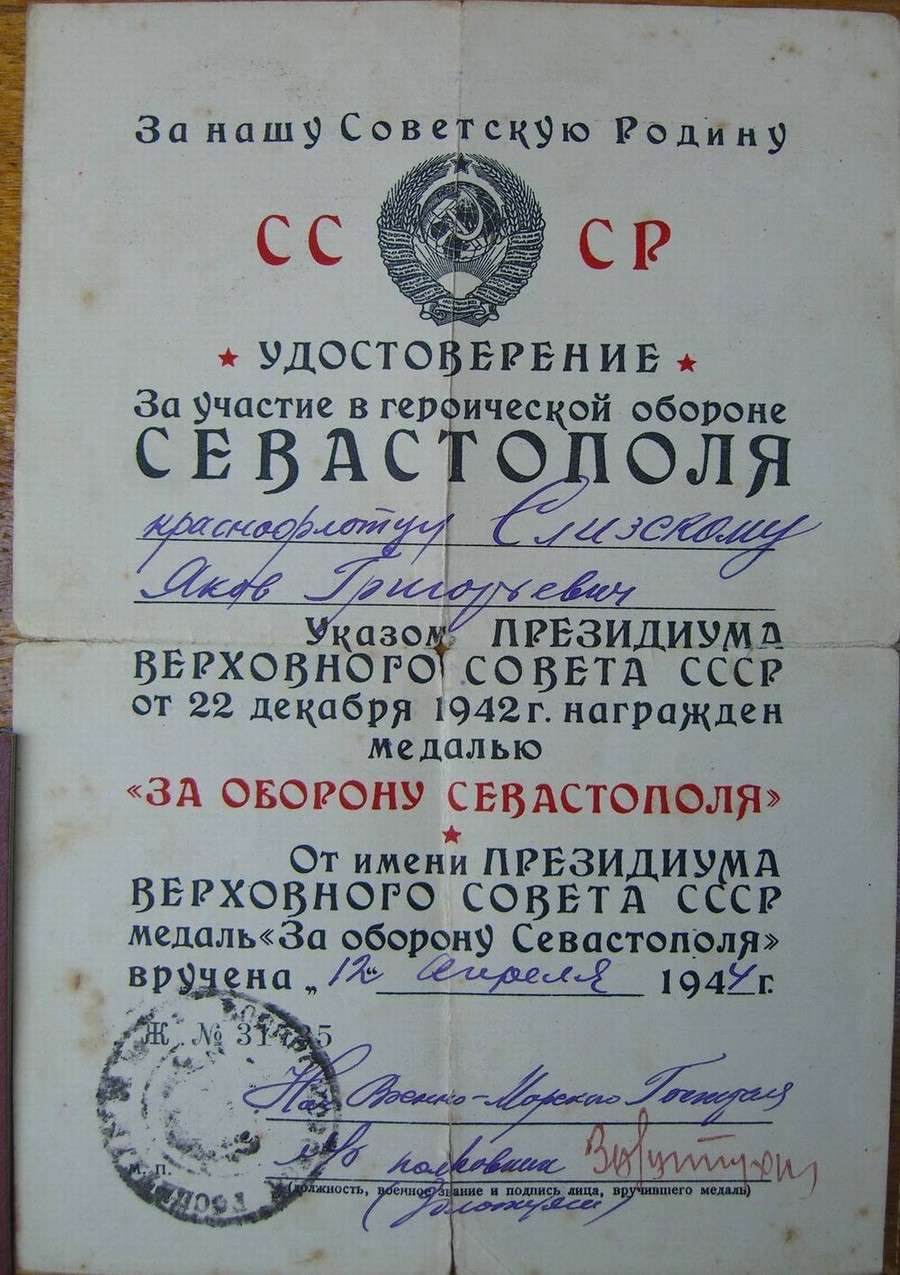 За нашу Советскую Родину
СССР
УДОСТОВЕРЕНИЕ
За участие в героической обороне
СЕВАСТОПОЛЯ
краснофлотцу Слизскому
Яков Григорьевич
Указом ПРЕЗИДИУМА
ВЕРХОВНОГО СОВЕТА СССР
от 22 декабря 1942 г. награжден
медалью
«ЗА ОБОРОНУ СЕВАСТОПОЛЯ»
От имени ПРЕЗИДИУМА
ВЕРХОВНОГО СОВЕТА СССР
медаль «За оборону Севастополя»
вручена „12“ апреля 1944 г.
Ж №
Нач Военно-Морского Госпиталя
полковник
м. п.
(должность, военное звание и подпись лица, вручившего медаль)